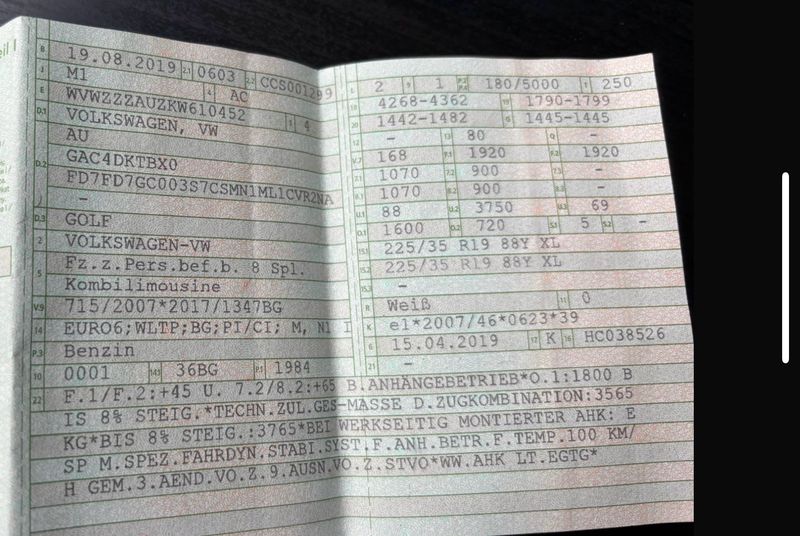 B 19.08.2019 2.1 0603 2.2 CCS001299
J M1 4 AC
E WVWZZZAUZKW610452 3 4
D.1 VOLKSWAGEN, VW
AU
D.2 GAC4DKTBX0
FD7FD7GC003S7CSMN1ML1CVR2NA
-
D.3 GOLF
2 VOLKSWAGEN-VW
5 Fz.z.Pers.bef.b. 8 Spl.
Kombilimousine
V.9 715/2007*2017/1347BG
14 EURO6;WLTP;BG;PI/CI; M, N1 I
P.3 Benzin
10 0001 14.1 36BG P.1 1984
L 2 9 1 P.2 P.4 180/5000 T 250
18 4268-4362 19 1790-1799
20 1442-1482 G 1445-1445
12 - 13 80 Q -
V.7 168 F.1 1920 F.2 1920
7.1 1070 7.2 900 7.3 -
8.1 1070 8.2 900 8.3 -
U.1 88 U.2 3750 U.3 69
O.1 1600 O.2 720 S.1 5 S.2 -
15.1 225/35 R19 88Y XL
15.2 225/35 R19 88Y XL
15.3 -
R Weiß 11 0
K e1*2007/46*0623*39
6 15.04.2019 17 K 16 HC038526
21 -
22 F.1/F.2:+45 U. 7.2/8.2:+65 B.ANHÄNGEBETRIEB*O.1:1800 B
IS 8% STEIG.*TECHN.ZUL.GES-MASSE D.ZUGKOMBINATION:3565
KG*BIS 8% STEIG.:3765*BEI WERKSEITIG MONTIERTER AHK: E
SP M.SPEZ.FAHRDYN.STABI.SYST.F.ANH.BETR.F.TEMP.100 KM/
H GEM.3.AEND.VO.Z.9.AUSN.VO.Z.STVO*WW.AHK LT.EGTG*